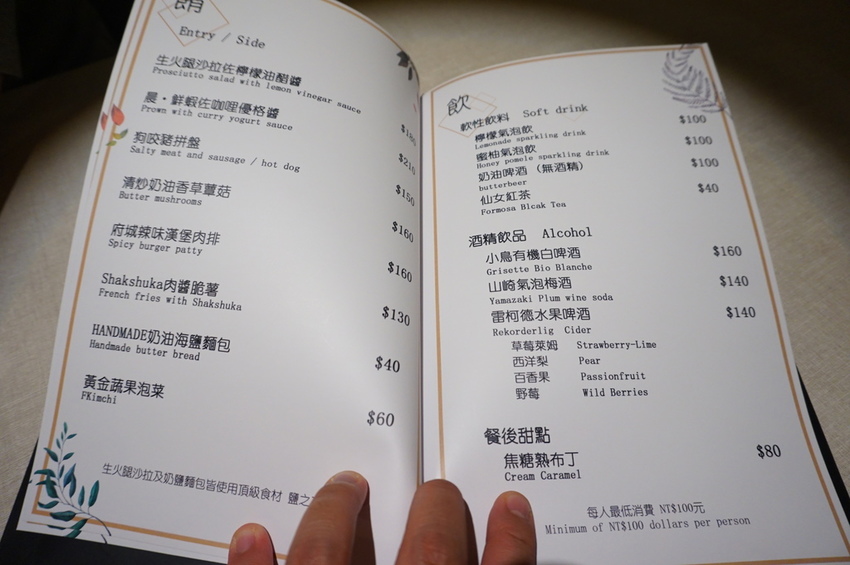 Entry / Side
生火腿沙拉佐檸檬油醋醬
Prosciutto salad with lemon vinegar sauce
$180
晨・鮮蝦佐咖哩優格醬
Prown with curry yogurt sauce
$210
狗咬豬拼盤
Salty meat and sausage / hot dog
$150
清炒奶油香草蕈菇
Butter mushrooms
$160
府城辣味漢堡肉排
Spicy burger patty
$160
Shakshuka肉醬脆薯
French fries with Shakshuka
$130
HANDMADE奶油海鹽麵包
Handmade butter bread
$40
黃金蔬果泡菜
FKimchi
$60
生火腿沙拉及奶鹽麵包皆使用頂級食材 鹽之
飲
軟性飲料 Soft drink
檸檬氣泡飲 $100
Lemonade sparkling drink
蜜柚氣泡飲 $100
Honey pomele sparkling drink
奶油啤酒 (無酒精) $100
butterbeer
仙女紅茶 $40
Formosa Blcak Tea
酒精飲品 Alcohol
小鳥有機白啤酒 $160
Grisette Bio Blanche
山崎氣泡梅酒 $140
Yamazaki Plum wine soda
雷柯德水果啤酒 $140
Rekorderlig Cider
草莓萊姆 Strawberry-Lime
西洋梨 Pear
百香果 Passionfruit
野莓 Wild Berries
餐後甜點
焦糖熟布丁 $80
Cream Caramel
每人最低消費 NT$100元
Minimum of NT$100 dollars per person